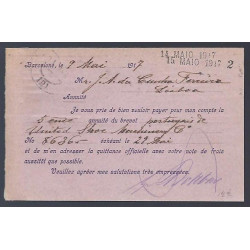 14 MAIO 1917
15 MAIO 1917 2
Barcelone, le 9 Mai 1917
Mr. J. A. da Cunha Ferreira
Lisboa
Annuité
Je vous prie de bien vouloir payer pour mon compte la
5 annuité du brevet portugais de
United Shoe Machinery Co
No échéant le 28 Mai
et de m'adresser la quittance officielle avec votre note de frais
aussitôt que possible.
Veuillez agréer mes salutations très empressées.